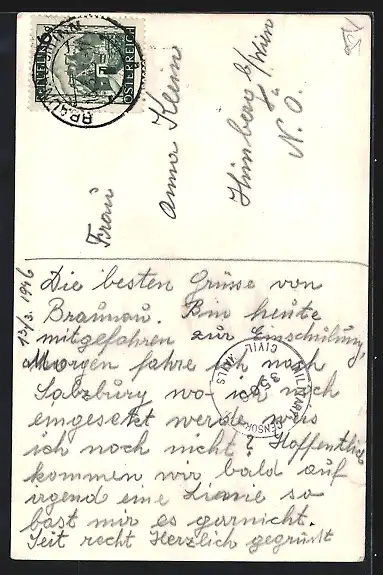 BRAUNAU
ÖSTERREICH
Frau
Anna Klein
Himberg b/Wien
N. Ö.
13/3. 1946
Die besten Grüsse von
Braunau. Bin heute
mitgefahren zur Einschulung,
Morgen fahre ich nach
Salzburg wo ich noch
eingesetzt werde weis
ich noch nicht? Hoffentlich
kommen wir bald auf
irgend eine Linie so
bast mir es garnicht.
Seit recht Herzlich gegrüsst
MILITARY CENSORSHIP
CIVIL MAILS